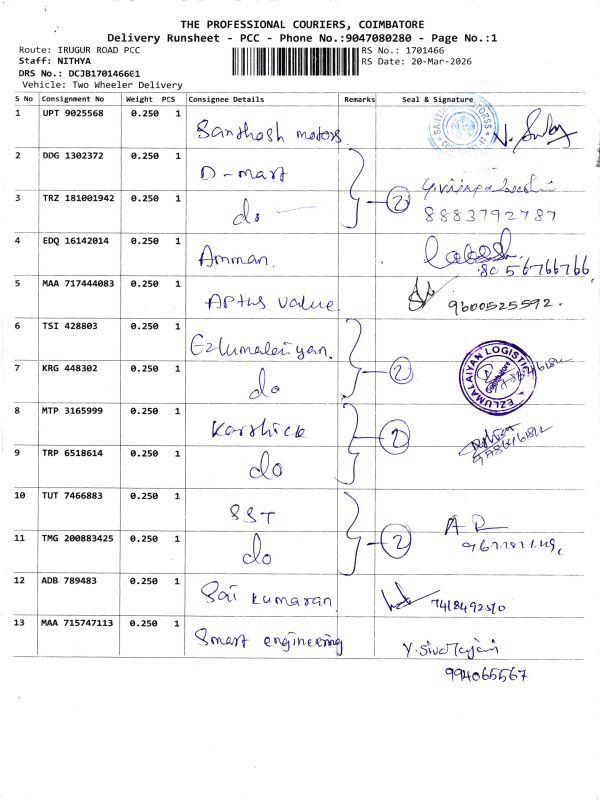 THE PROFESSIONAL COURIERS, COIMBATORE
Delivery Runsheet - PCC - Phone No.:9047080280 - Page No.:1
Route: IRUGUR ROAD PCC RS No.: 1701466
Staff: NITHYA RS Date: 20-Mar-2026
DRS No.: DCJB170146601
Vehicle: Two Wheeler Delivery
S No Consignment No Weight PCS Consignee Details Remarks Seal & Signature
1 UPT 9025568 0.250 1 Santhosh motors.
2 DDG 1302372 0.250 1 D-mart
3 TRZ 181001942 0.250 1 do 2 8883792787
4 EDQ 16142014 0.250 1 Amman. 8056766766
5 MAA 717444083 0.250 1 Aptus value 9600525592.
6 TSI 428803 0.250 1 Ezlumalaiyan.
7 KRG 448302 0.250 1 do 2 EZLUMALAIYAN LOGISTIC
8 MTP 3165999 0.250 1 Karthick
9 TRP 6518614 0.250 1 do 2
10 TUT 7466883 0.250 1 SST
11 TMG 200883425 0.250 1 do 2 AR
12 ADB 789483 0.250 1 Sai kumaran 7418492510
13 MAA 715747113 0.250 1 Smart engineering Y.Sivaranjani
994065567